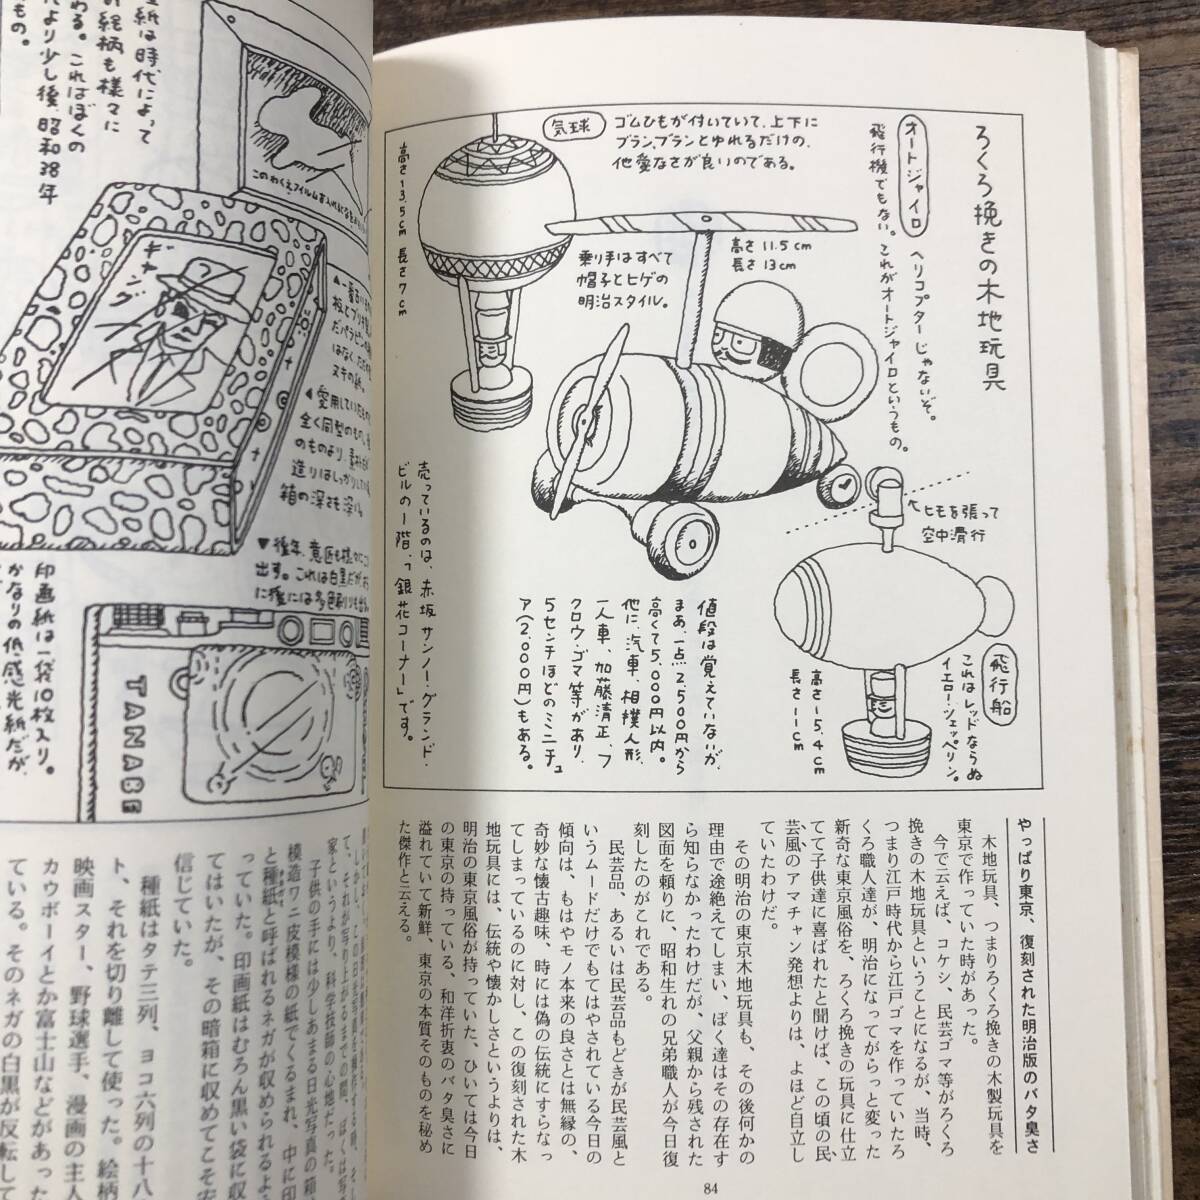 ろくろ挽きの木地玩具
オートジャイロ
ヘリコプターじゃないぞ。
飛行機でもない。これがオートジャイロというもの。
気球
ゴムひもが付いていて、上下に
ブラン、ブランとゆれるだけの、
他愛なさが良いのである。
高さ13.5cm 長さ7cm
乗り手はすべて
帽子とヒゲの
明治スタイル。
高さ11.5cm
長さ13cm
ヒモを張って
空中滑行
飛行船
これはレッドならぬ
イエロー・ツェッペリン。
高さ15.4cm
長さ11cm
値段は覚えていないが、
まあ、一点2,500円から
高くて5,000円以内。
他に、汽車、相撲人形、
一人車、加藤清正、フ
クロウ・ゴマ等があり、
5センチほどのミニチュ
ア(2,000円)もある。
売っているのは、赤坂サンノー・グランド・
ビルの1階、「銀花コーナー」です。
やっぱり東京、復刻された明治版のバタ臭さ
木地玩具、つまりろくろ挽きの木製玩具を
東京で作っていた時があった。
今で云えば、コケシ、民芸ゴマ等がろくろ
挽きの木地玩具ということになるが、当時、
つまり江戸時代から江戸ゴマを作っていたろ
くろ職人達が、明治になってがらっと変った
新奇な東京風俗を、ろくろ挽きの玩具に仕立
てて子供達に喜ばれたと聞けば、この頃の民
芸風のアマチャン発想よりは、よほど自立し
ていたわけだ。
その明治の東京木地玩具も、その後何かの
理由で途絶えてしまい、ぼく達はその存在す
ら知らなかったわけだが、父親から残された
図面を頼りに、昭和生れの兄弟職人が今日復
刻したのがこれである。
民芸品、あるいは民芸品もどきが民芸風と
いうムードだけでもてはやされている今日の
傾向は、もはやモノ本来の良さとは無縁の、
奇妙な懐古趣味、時には偽の伝統にすらなっ
てしまっているのに対し、この復刻された木
地玩具には、伝統や懐かしさというよりは、
明治の東京風俗が持っていた、ひいては今日
の東京の持っている、和洋折衷のバタ臭さに
溢れていて新鮮、東京の本質そのものを秘め
た傑作と云える。
84
紙は時代によって
絵柄も様々に
わる。これはぼくの
より少し後、昭和38年
もの。
ギャング
全く同型のもの
のものより、素朴だが
造りはしっかりしている
箱の深さも深い。
▼後年、意匠も様々に
出す。これは白黒だが、
TANABE
印画紙は一袋10枚入り。
かなりの低感光紙だが、
子供の手には少しあまる日光写真の箱
模造ワニ皮模様の紙でくるまれ、中に印
と種紙と呼ばれるネガが収められるよう
っていた。印画紙はむろん黒い袋に収
てはいたが、その暗箱に収めてこそ安
信じていた。
種紙はタテ三列、ヨコ六列の十八
ト、それを切り離して使った。絵柄
映画スター、野球選手、漫画の主人
カウボーイとか富士山などがあった
ている。そのネガの白黒が反転して